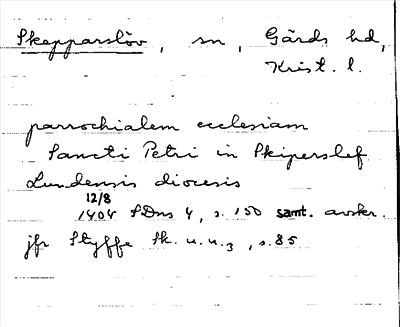 Skepparslöv, sn, Gärds hd,
Krist. l.
parrochialem ecclesiam
Sancti Petri in Skiperslef
Lundensis diocesis
12/8
1404 SDns 4, s. 150 samt. avskr.
jfr Styffe Sk. u. u.3, s. 85